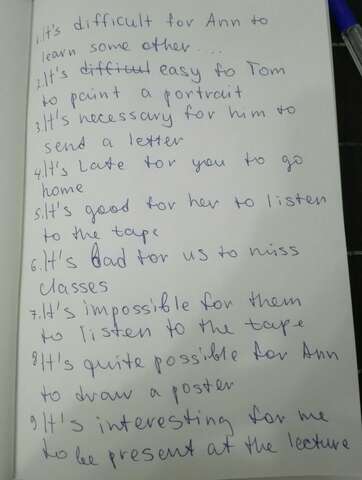 1. It's difficult for Ann to
learn some other...
2. It's difficult easy fo Tom
to paint a portrait
3. It's necessary for him to
send a letter
4. It's Late for you to go
home
5. It's good for her to listen
to the tape
6. It's bad for us to miss
classes
7. It's impossible for them
to listen to the tape
8 It's quite possible for Ann
to draw a poster
9 It's interesting for me
to be present at the lecture